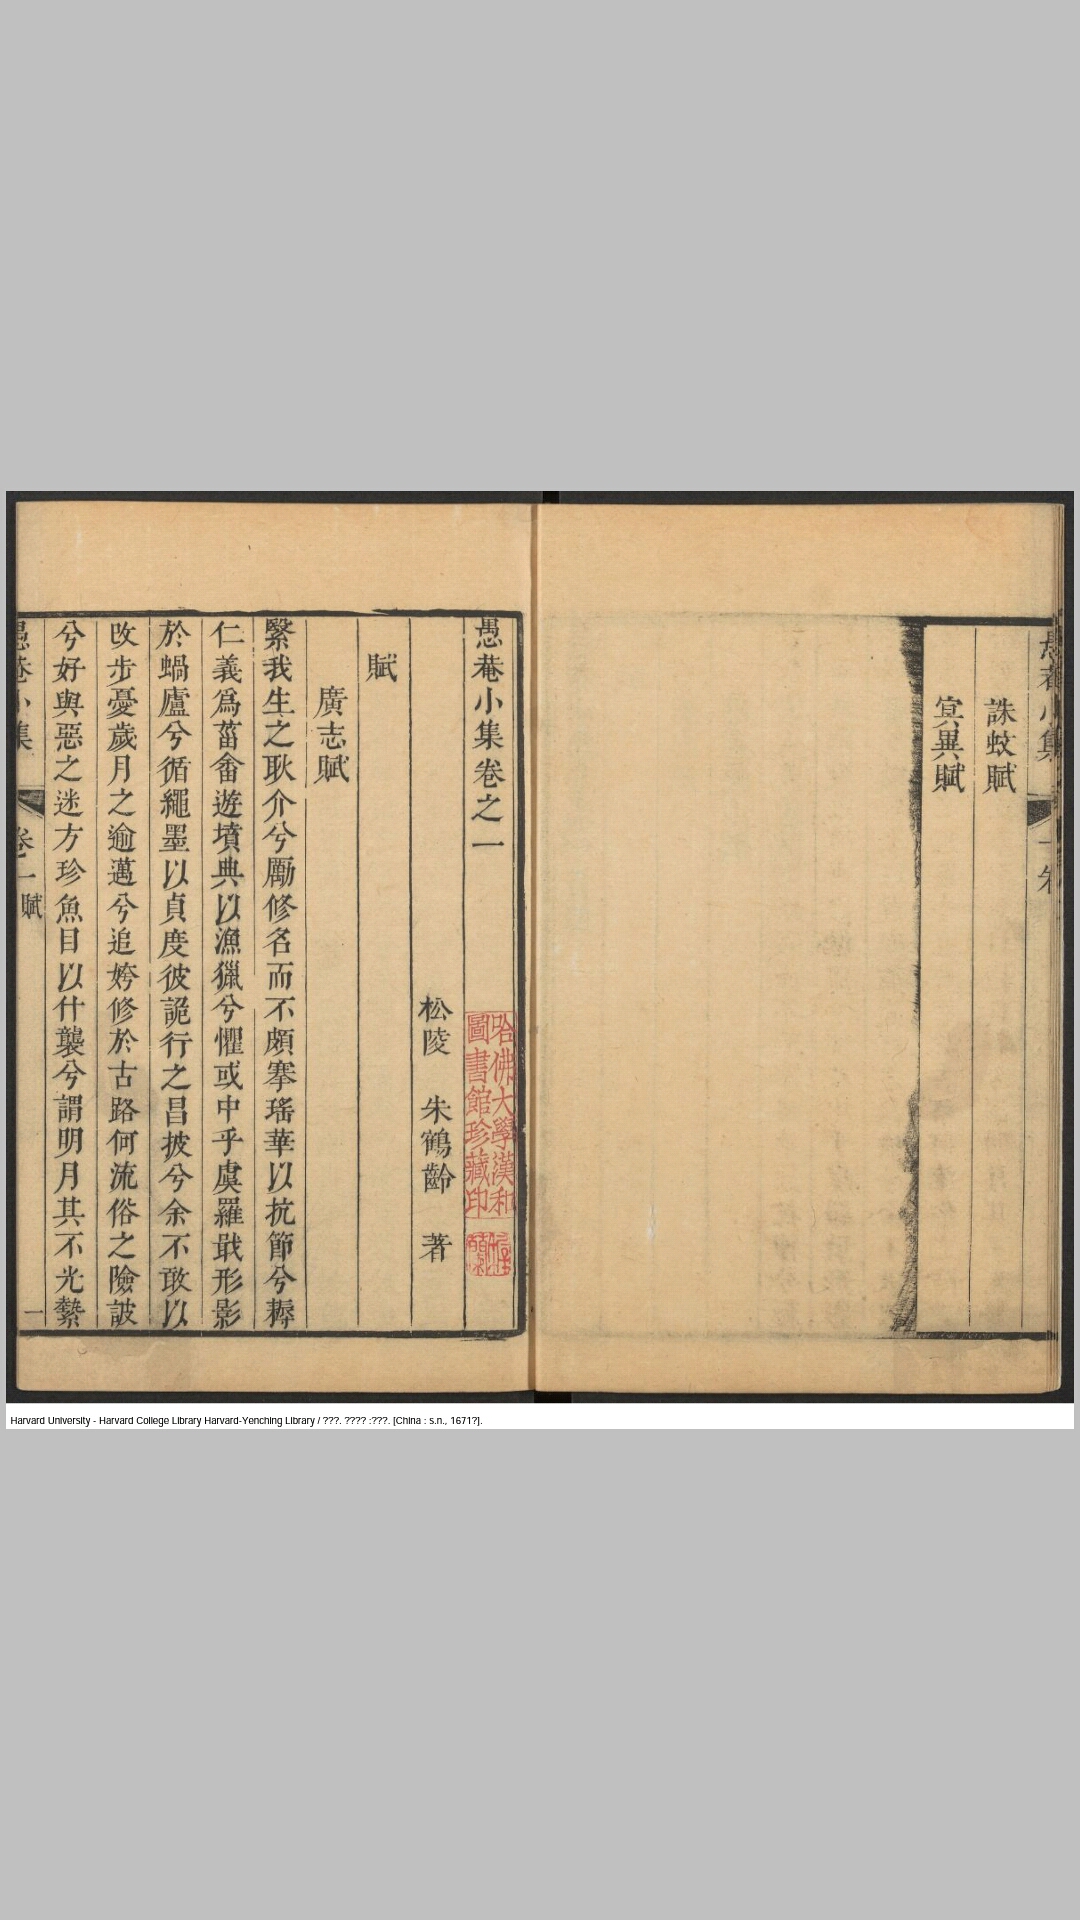 誅蚊賦
寘異賦
愚菴小集卷之一
哈佛大學漢和
圖書館珍藏印
松陵 朱鶴齡 著
賦
廣志賦
繄我生之耿介兮勵修名而不頗搴瑤華以抗節兮耨
仁義爲菑畬遊墳典以漁獵兮懼或中乎虞羅戢形影
於蝸廬兮循繩墨以貞度彼詭行之昌披兮余不敢以
改步憂歲月之逾邁兮追姱修於古路何流俗之險詖
兮好與惡之迷方珍魚目以什襲兮謂明月其不光縶
愚菴小集 卷一 賦 一
Harvard University - Harvard College Library Harvard-Yenching Library / ???. ???? :???. [China : s.n., 1671?].